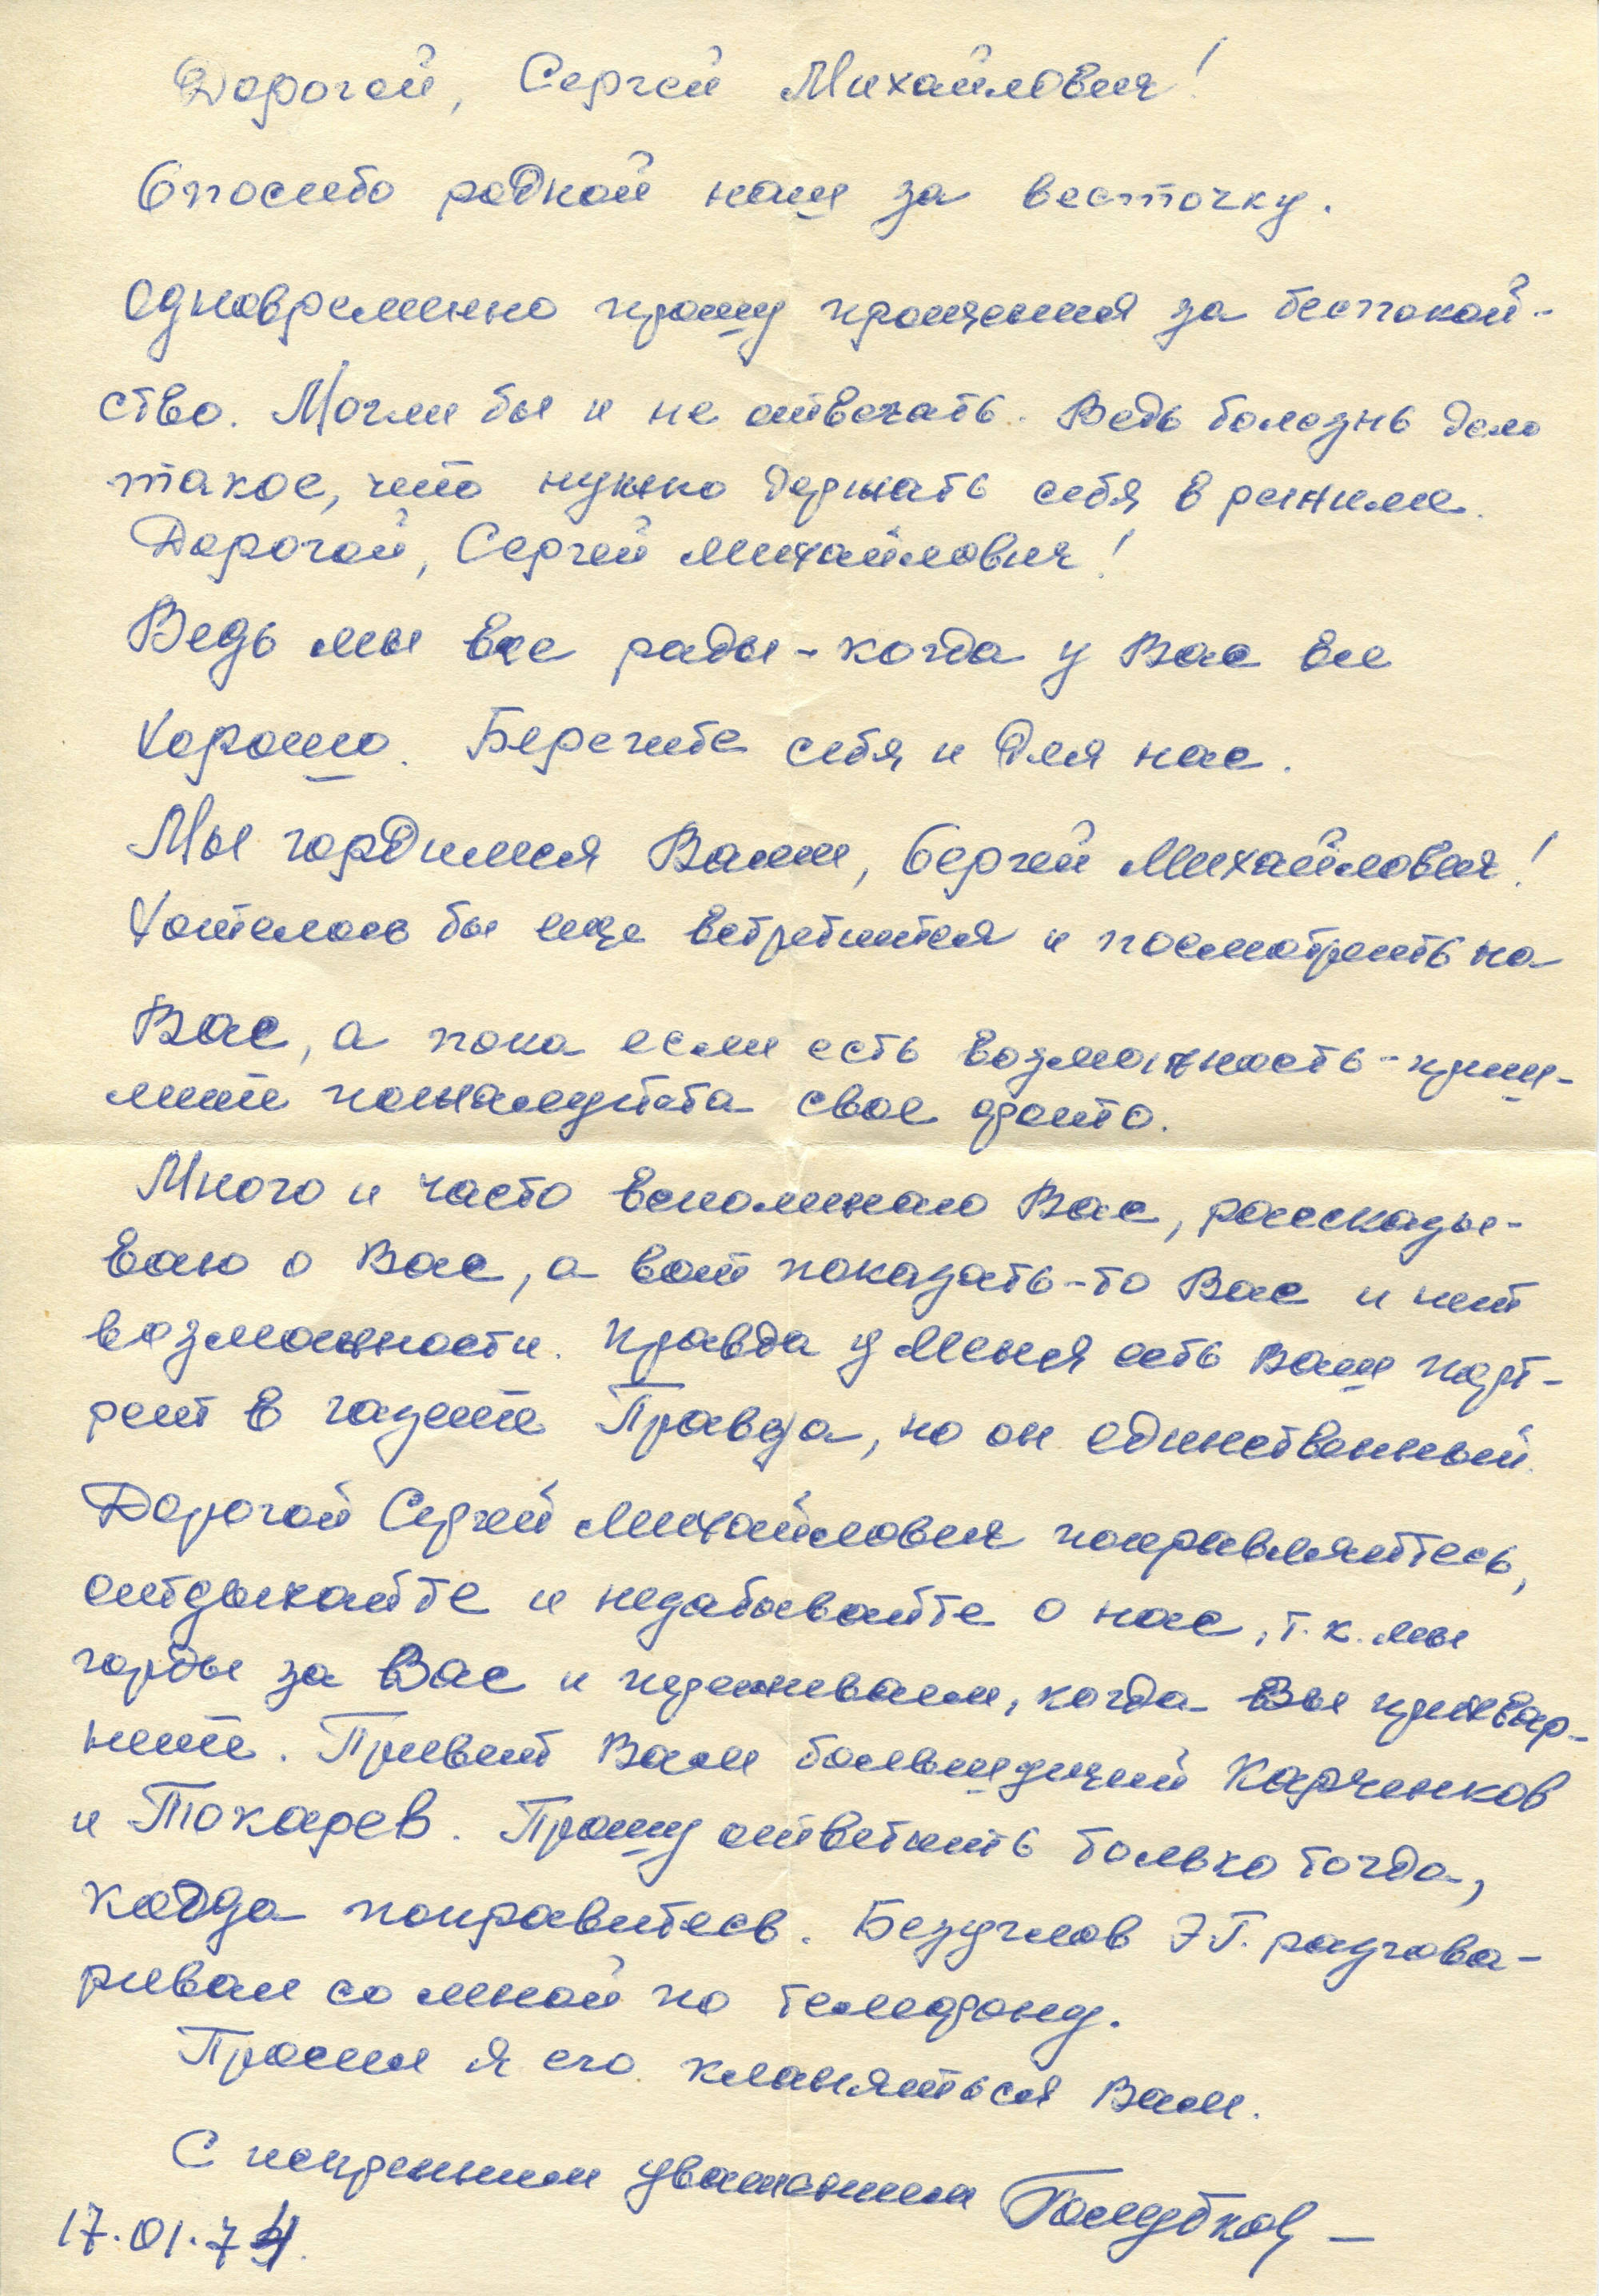 Дорогой, Сергей Михайлович!
Спосибо родной наш за весточку.
Одновременно прошу прощения за беспокой-
ство. Могли бы и не отвечать. Ведь болезнь дело
такое, что нужно держать себя в режиме.
Дорогой, Сергей Михайлович!
Ведь мы все рады - когда у Вас все
хорошо. Берегите себя и для нас.
Мы гордимся Вами, Сергей Михайлович!
Хотелось бы еще встретится и посмотреть на
Вас, а пока если есть возможность - приш-
лите пожалуйста свое фото.
Много и часто вспоминаю Вас, рассказы-
ваю о Вас, а вот показать-то Вас и нет
возможности. Правда у меня есть Ваш порт-
рет в газете Правда, но он единственный.
Дорогой Сергей Михайлович поправляйтесь,
отдыхайте и незабывайте о нас, т.к. мы
горды за Вас и переживаем, когда Вы прихвар-
нете. Привет Вам большущий Карченков
и Токарев. Прошу ответить только тогда,
когда поправитесь. Безуглов Э.Г. разгова-
ривал со мной по телефону.
Просил я его кланяться Вам.
С искренним уважением Голубков
17.01.74.